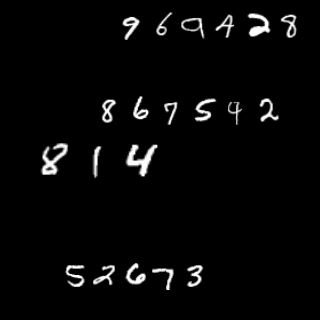 969428
867542
814
52673